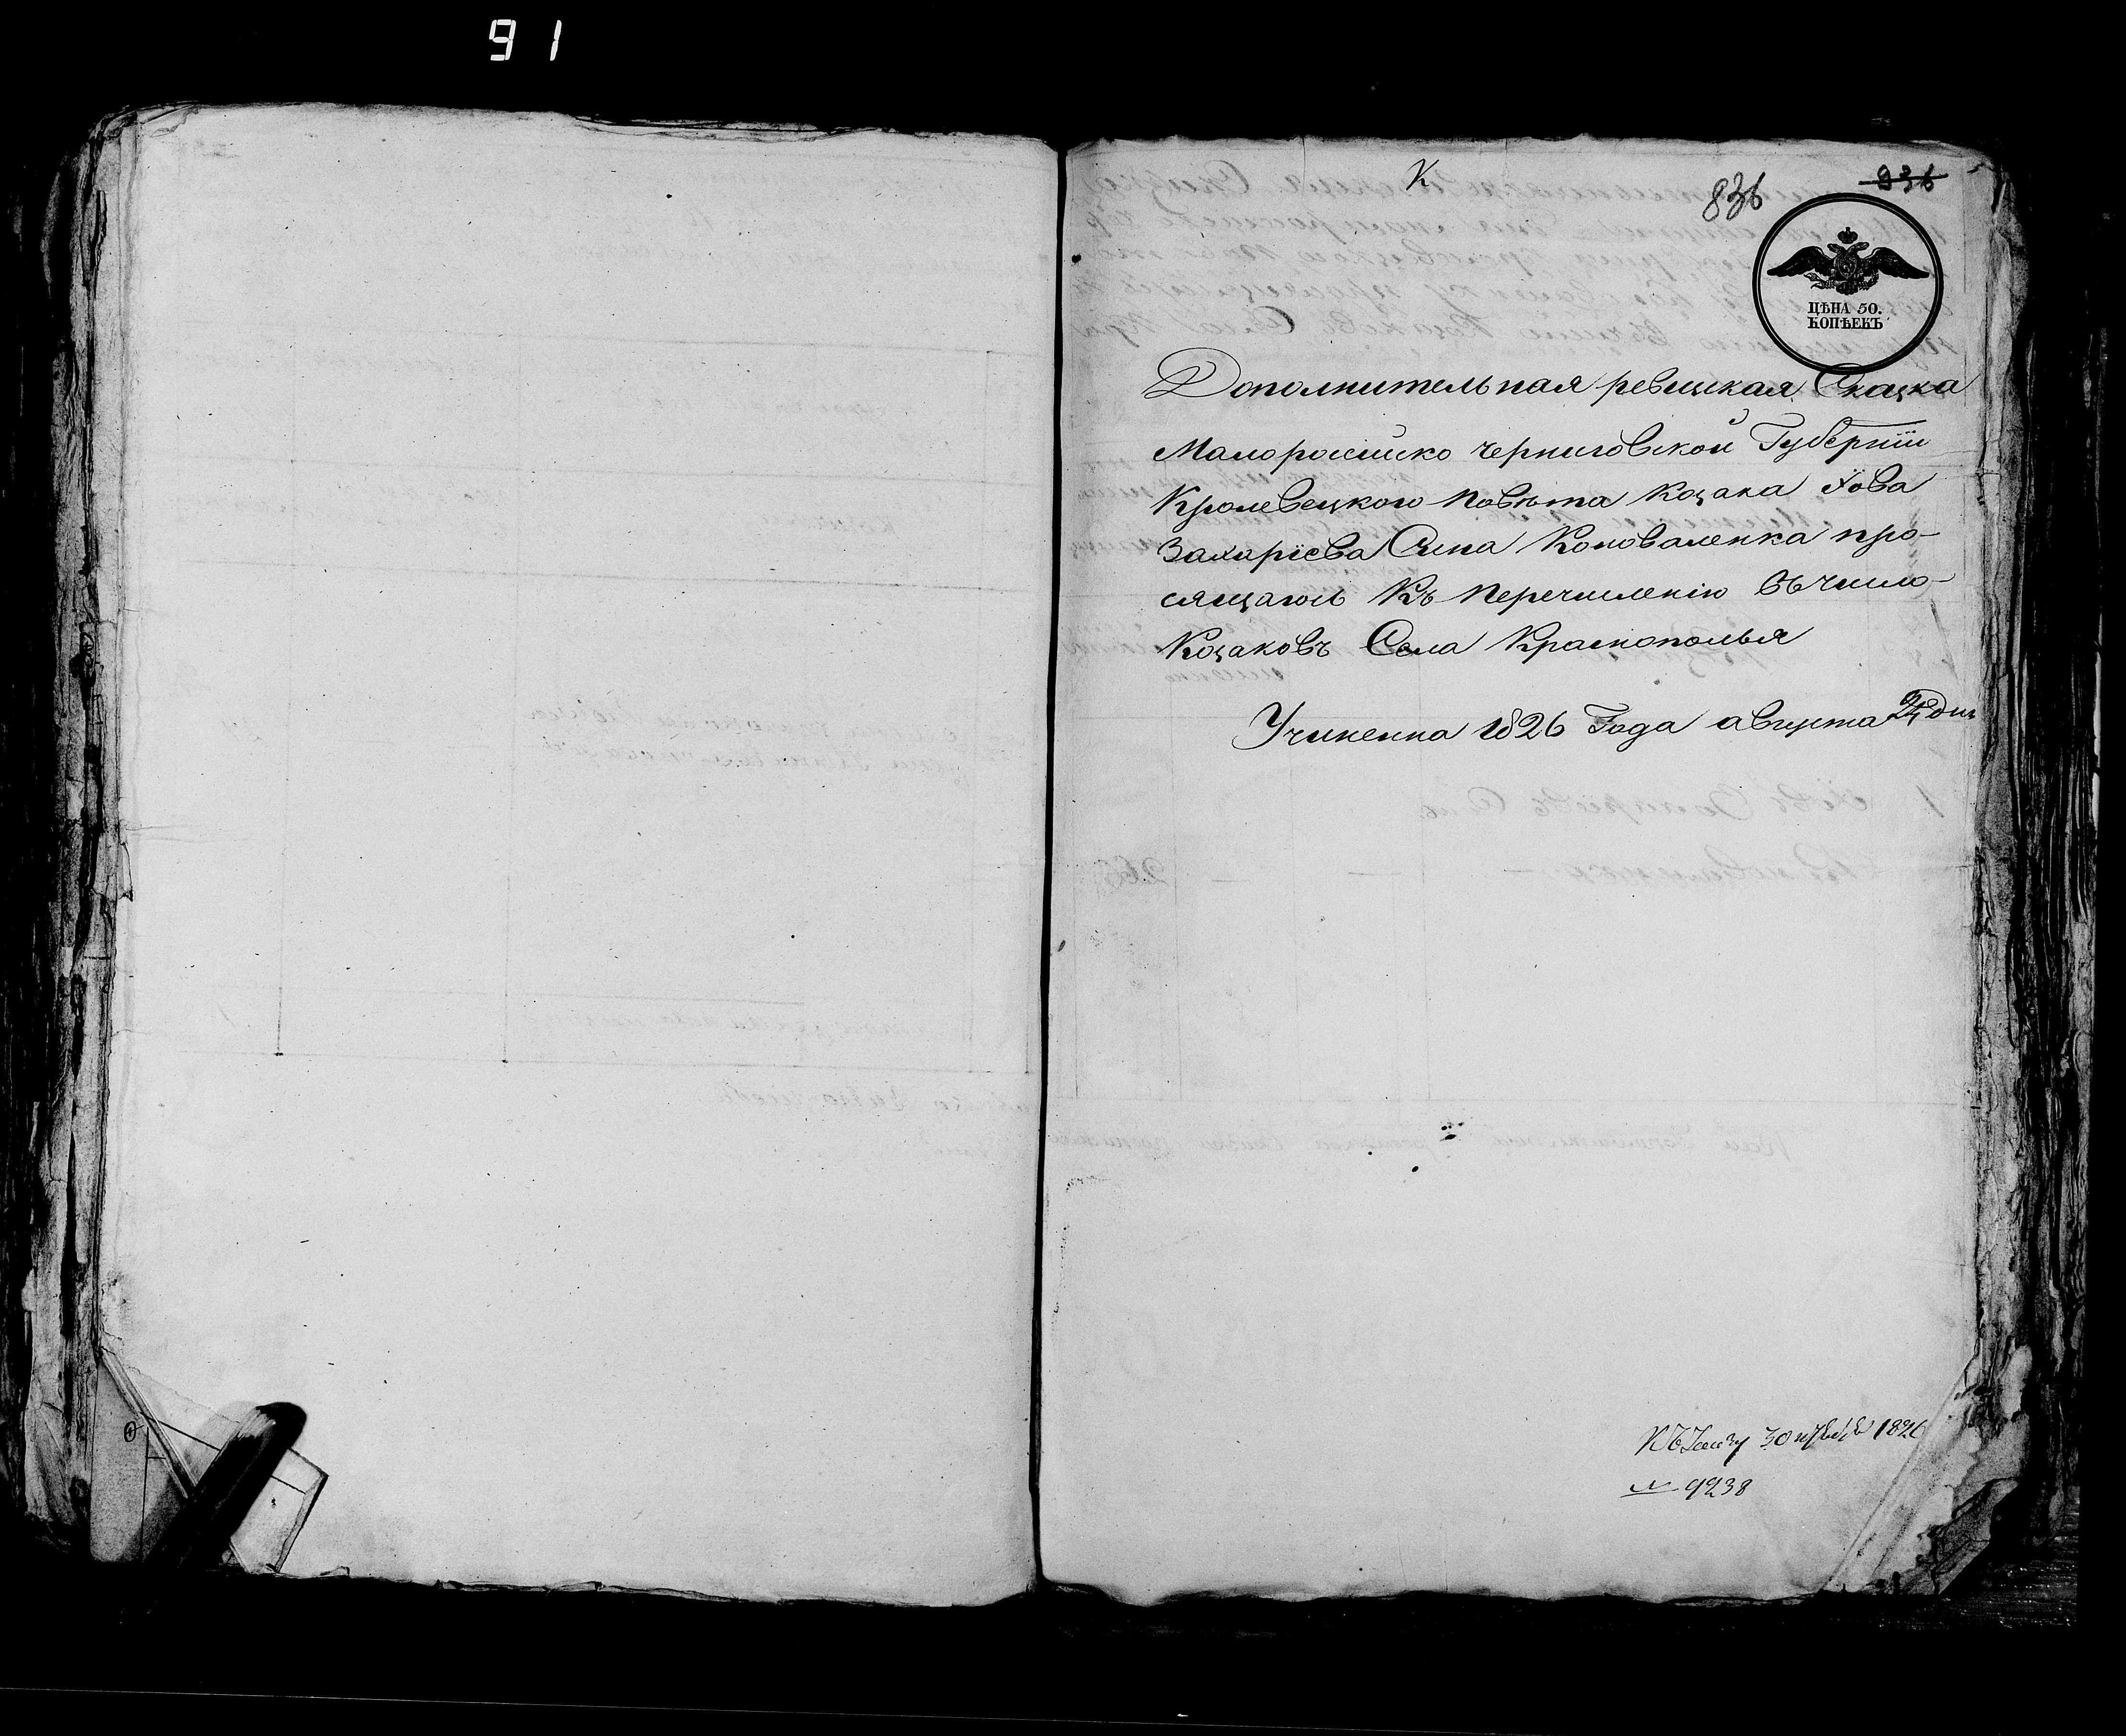 91
К
836
936
ЦѢНА 50.
КОПѢЕКЪ
Дополнительная ревизкая Сказка
Малоросійско Черниговской Губерніи
Кролевецкого повѣта козака Іова
Захаріева Сына Коноваленка про-
сящагось къ перечисленію въ число
Козаковъ Села Краснополья
Учиненна 1826 Года августа 24 дня
30 1826
№ 9238